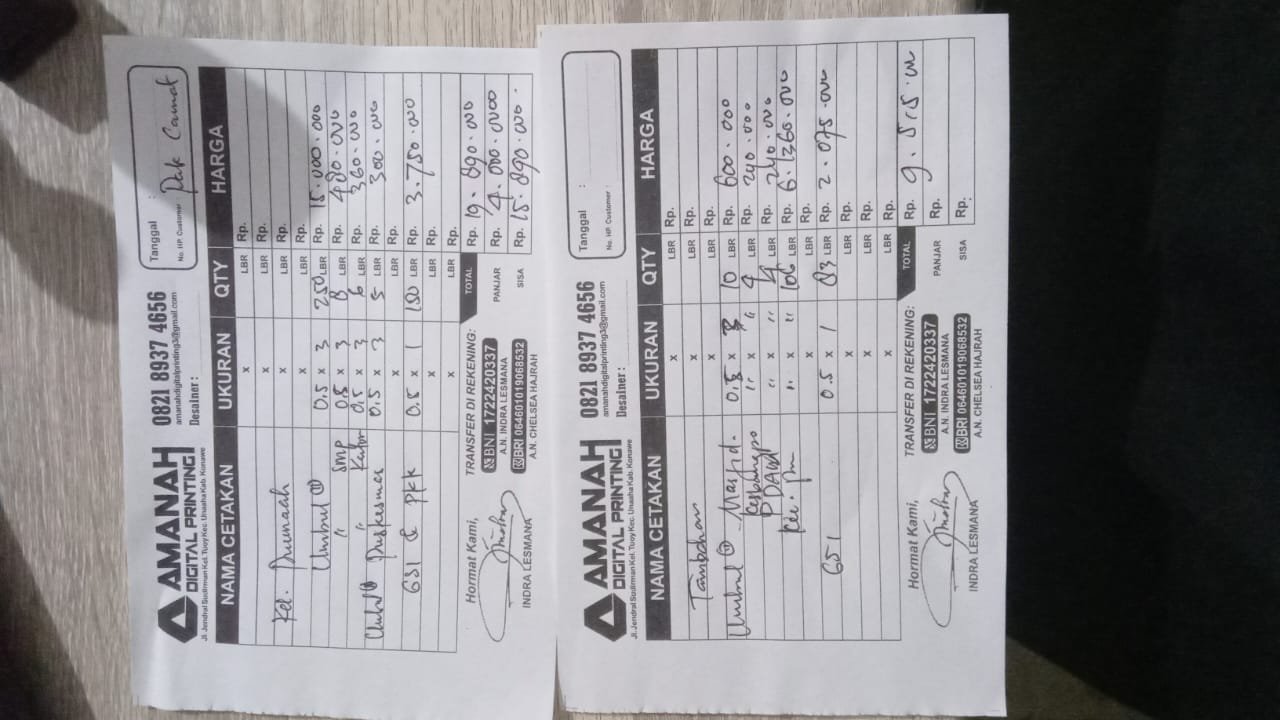 AMANAH
DIGITAL PRINTING
Jl. Jendral Sudirman Kel. Tuoy Kec. Unaaha Kab. Konawe
0821 8937 4656
amanahdigitalprinting3@gmail.com
Desainer :
Tanggal :
No. HP. Customer : Pak Camat
NAMA CETAKAN UKURAN QTY HARGA
x LBR Rp.
x LBR Rp.
Kel. x LBR Rp.
x LBR Rp.
Umbul 0.5 x 3 250 LBR Rp. 15.000.000
" SMP 0.5 x 3 8 LBR Rp. 480.000
" 0.5 x 3 6 LBR Rp. 360.000
Umbul Puskesmas 0.5 x 3 5 LBR Rp. 300.000
x LBR Rp.
GSI & PKK 0.5 x 1 150 LBR Rp. 3.750.000
x LBR Rp.
x LBR Rp.
Hormat Kami,
INDRA LESMANA
TRANSFER DI REKENING:
BNI 1722420337
A.N. INDRA LESMANA
BRI 064601019068532
A.N. CHELSEA HAJRAH
TOTAL Rp. 19.890.000
PANJAR Rp. 4.000.000
SISA Rp. 15.890.000
AMANAH
DIGITAL PRINTING
Jl. Jendral Sudirman Kel. Tuoy Kec. Unaaha Kab. Konawe
0821 8937 4656
amanahdigitalprinting3@gmail.com
Desainer :
Tanggal :
No. HP. Customer :
NAMA CETAKAN UKURAN QTY HARGA
x LBR Rp.
Tambahan x LBR Rp.
x LBR Rp.
Umbul Masjid. 0.5 x 3 10 LBR Rp. 600.000
" x " 4 LBR Rp. 240.000
PDAM " x " 4 LBR Rp. 240.000
" x " 106 LBR Rp. 6.360.000
x LBR Rp.
GSI 0.5 x 1 83 LBR Rp. 2.075.000
x LBR Rp.
x LBR Rp.
x LBR Rp.
Hormat Kami,
INDRA LESMANA
TRANSFER DI REKENING:
BNI 1722420337
A.N. INDRA LESMANA
BRI 064601019068532
A.N. CHELSEA HAJRAH
TOTAL Rp. 9.515.000
PANJAR Rp.
SISA Rp.